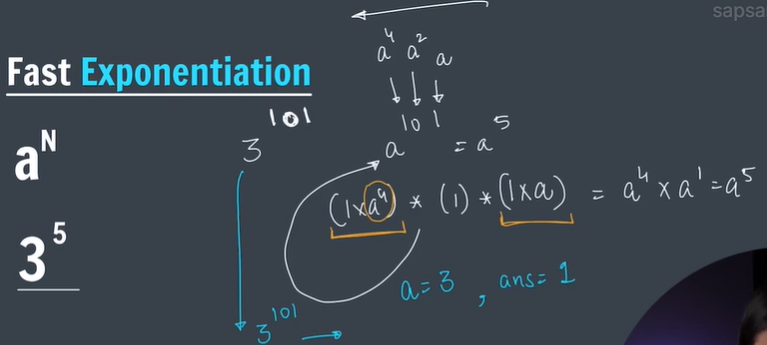 sapsa
Fast Exponentiation
a⁴ a² a
3¹⁰¹
a¹⁰¹ = a⁵
aᴺ
(1×a⁴) * (1) * (1×a) = a⁴ × a¹ = a⁵
3⁵
a=3 , ans= 1
3¹⁰¹